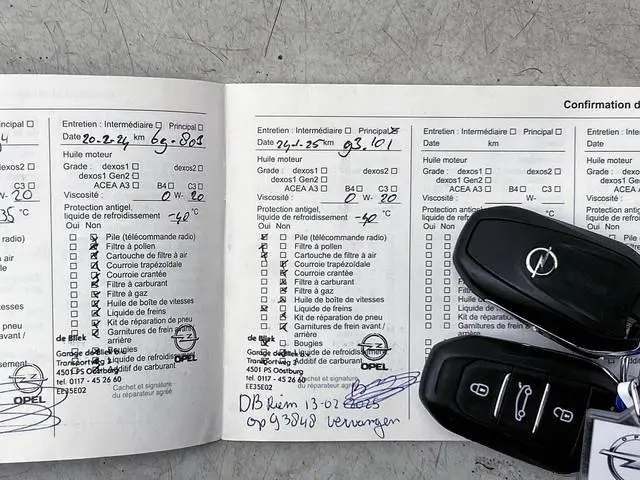 Confirmation d
Entretien : Intermédiaire Principal
Date 20-2-24 km 69-803
Huile moteur
Grade : dexos1 dexos2
dexos1 Gen2
ACEA A3 B4 C3
Viscosité : 0 W- 20
Protection antigel,
liquide de refroidissement -40 °C
Oui Non
Pile (télécommande radio)
Filtre à pollen
Cartouche de filtre à air
Courroie trapézoïdale
Courroie crantée
Filtre à carburant
Filtre à gaz
Huile de boîte de vitesses
Liquide de freins
Kit de réparation de pneu
Garnitures de frein avant /
arrière
Bougies
Liquide de refroidissement
Additif de carburant
4501 PS Oostburg
tel. 0117 - 45 26 60
EE35E02
Cachet et signature
du réparateur agréé
OPEL
Entretien : Intermédiaire Principal
Date 24-1-25 km 93.101
Huile moteur
Grade : dexos1 dexos2
dexos1 Gen2
ACEA A3 B4 C3
Viscosité : 0 W- 20
Protection antigel,
liquide de refroidissement -40 °C
Oui Non
Pile (télécommande radio)
Filtre à pollen
Cartouche de filtre à air
Courroie trapézoïdale
Courroie crantée
Filtre à carburant
Filtre à gaz
Huile de boîte de vitesses
Liquide de freins
Kit de réparation de pneu
Garnitures de frein avant /
arrière
Bougies
Liquide de refroidissement
Additif de carburant
4501 PS Oostburg
tel. 0117 - 45 26 60
EE35E02
Cachet et signature
du réparateur agréé
OPEL
DB Riem 13-02-2025
op 93848 vervangen
Entretien : Intermédiaire Principal
Date km
Huile moteur
Grade : dexos1 dexos2
dexos1 Gen2
ACEA A3 B4 C3
Viscosité : W-
Protection antigel,
liquide de refroidissement °C
Oui Non
Entretien : Intermé
Date
Huile moteur
Grade :